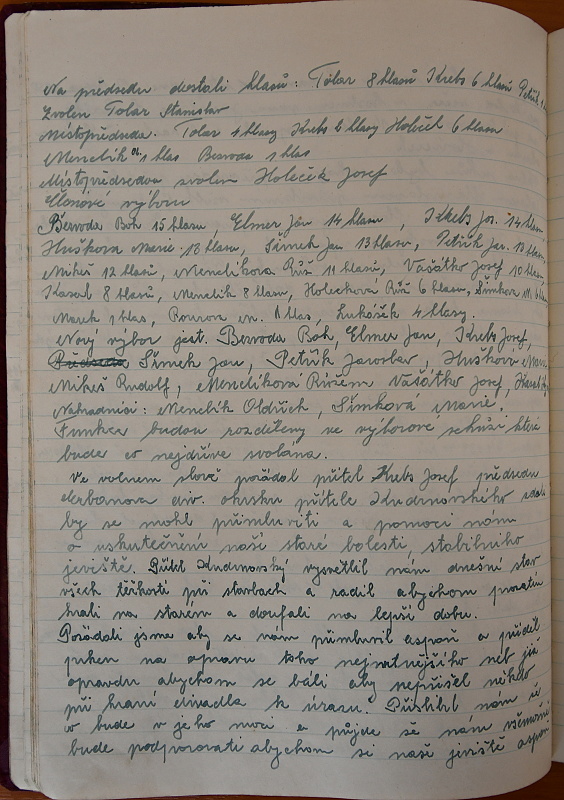 Na předsedu dostali hlasů: Tolar 8 hlasů Krebs 6 hlasů Petřík
Zvolen Tolar Stanislav
Místopředseda. Tolar 4 hlasy Krebs 6 hlasy Holeček 6 hlasů
Menclík 1 hlas Bezvoda 1 hlas
Místopředsedou zvolen Holeček Josef
Členové výboru
Bezvoda Boh. 15 hlasů, Elmer Jan 14 hlasů, Krebs Jos. 14 hlasů
Hušková Marie 13 hlasů, Šimek Jan 13 hlasů, Petřík Jar. 13 hlasů,
Mikeš 12 hlasů, Menclíkova Růž 11 hlasů, Vašátko Josef 10 hlasů,
8 hlasů, Menclík 8 hlasů, Holečkova Růž 6 hlasů, Šimkova M. 6 hlasů
Marek 1 hlas, 1 hlas, Lukášek 4 hlasy.
Nový výbor jest. Bezvoda Boh, Elmer Jan, Krebs Josef,
Šimek Jan, Petřík Jaroslav, Hušková Marie,
Mikeš Rudolf, Menclíková Růžem Vašátko Josef,
Nahradníci: Menclík Oldřich, Šimková Marie.
Funkce budou rozděleny ve výborové schůzi která
bude co nejdříve svolána.
Ve volném slově požádal přítel Krebs Josef předsedu
div. okrsku přítele Kudrnovského zdali
by se mohl přimluviti a pomoci nám
o uskutečnění naší staré bolesti, stabilního
jeviště. Přítel Kudrnovský vysvětlil nám dnešní stav
všech těžkostí při stavbách a radil abychom prozatím
hráli na starém a doufali na lepší dobu.
Požádali jsme aby se nám přimluvil aspoň o příděl
prken na opravu toho nejnutnějšího neb již
opravdu abychom se báli aby nepřišel někdo
při hraní divadla k úrazu. Přislíbil nám že
co bude v jeho moci a půjde se nám všemožně
bude podporovati abychom si naše jeviště aspoň